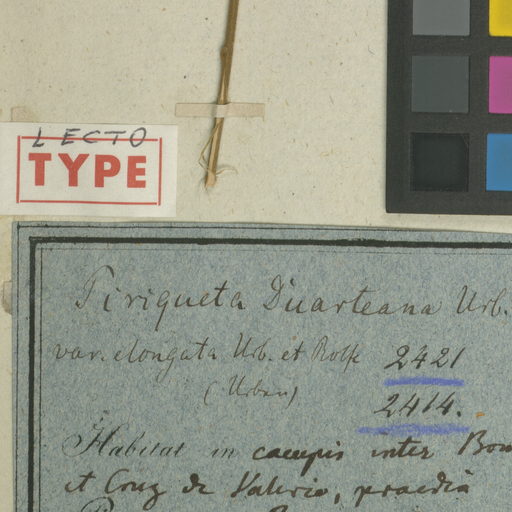 LECTO
TYPE
Piriqueta Duarteana Urb.
var. elongata Urb. et Rolfe 2421
(Urban) 2414.
Habitat in campis inter Bom
et Cruz de Valerio, praedia